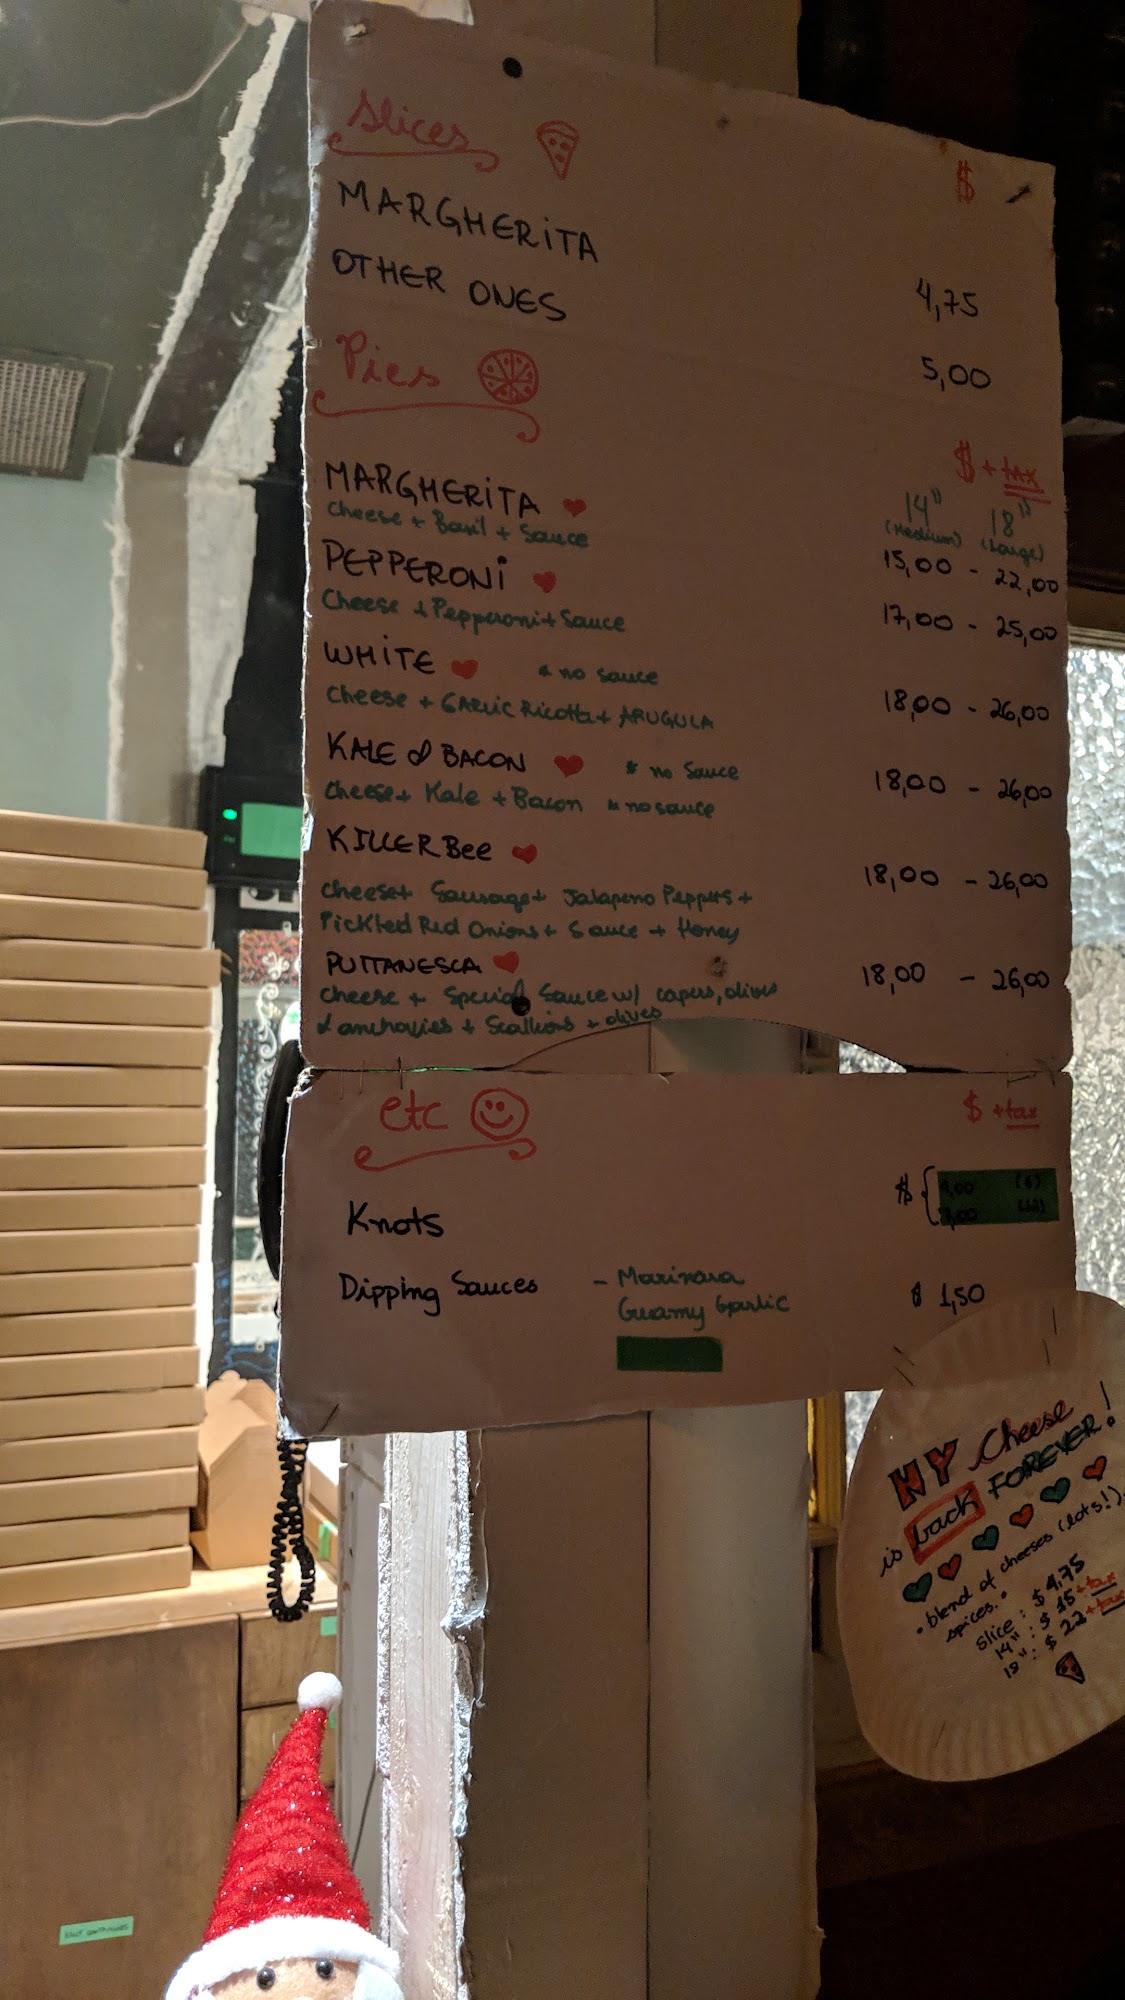 Slices
$
MARGHERITA 4,75
OTHER ONES 5,00
Pies
$ + tax
14" 18"
(Medium) (Large)
MARGHERITA 15,00 - 22,00
Cheese + Basil + Sauce
PEPPERONI 17,00 - 25,00
Cheese + Pepperoni + Sauce
WHITE * no sauce 18,00 - 26,00
Cheese + GARLIC Ricotta + ARUGULA
KALE & BACON * no sauce 18,00 - 26,00
Cheese + Kale + Bacon * no sauce
KILLER Bee 18,00 - 26,00
Cheese + Sausage + Jalapeno Peppers +
Pickled Red Onions + Sauce + Honey
PUTTANESCA 18,00 - 26,00
Cheese + Special Sauce w/ capers, olives
& anchovies + Scallions + olives
etc
$ + tax
Knots $ (6)
(12)
Dipping Sauces - Marinara $ 1,50
Creamy Garlic
NY Cheese
is back FOREVER!
• blend of cheeses (lots!)
spices •
slice : $ 4,75
14" : $ 15 + tax
18" : $ 22 + tax